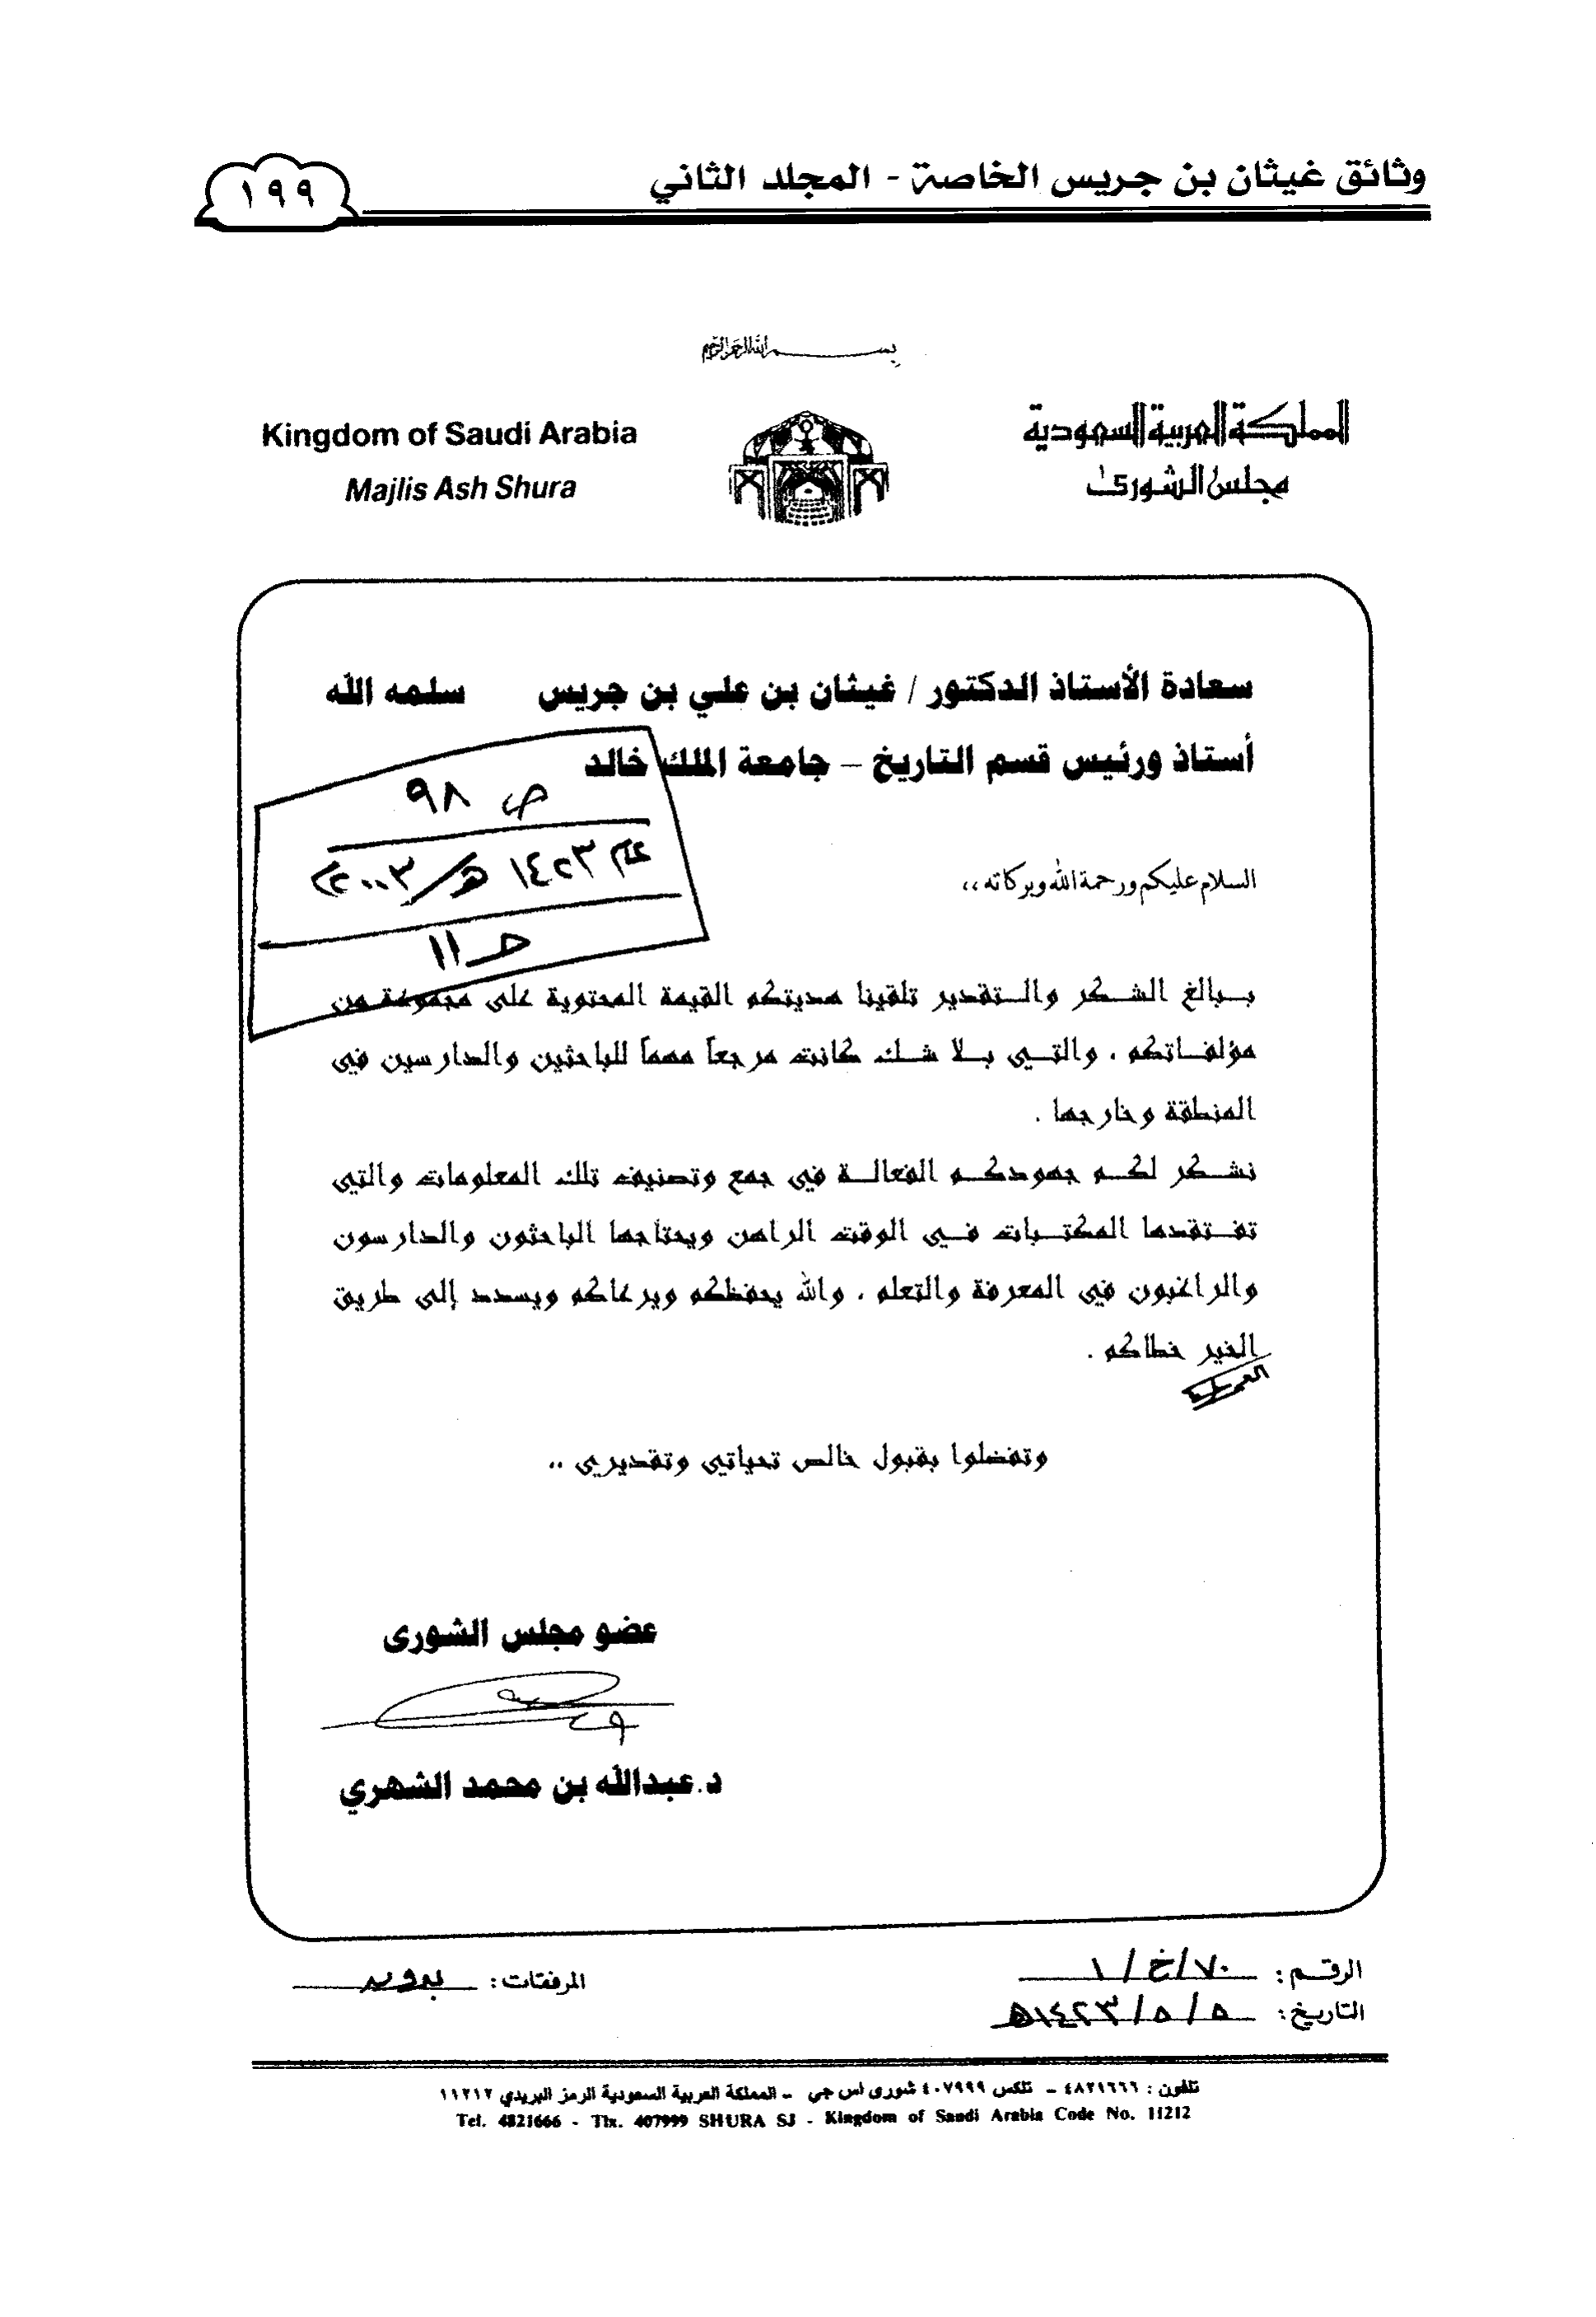 وثائق غيثان بن جريس الخاصة - المجلد الثاني
١٩٩
بسم الله الرحمن الرحيم
المملكة العربية السعودية
مجلس الشورى
Kingdom of Saudi Arabia
Majlis Ash Shura
سعادة الأستاذ الدكتور / غيثان بن علي بن جريس سلمه الله
أستاذ ورئيس قسم التاريخ – جامعة الملك خالد
ص ٩٨
عام ١٤٢٣ هـ/ ٢٠٠٣م
حـ ١١
السلام عليكم ورحمة الله وبركاته ،،
ببالغ الشكر والتقدير تلقينا هديتكم القيمة المحتوية على مجموعة من
مؤلفاتكم ، والتي بلا شك كانت مرجعاً مهماً للباحثين والدارسين في
المنطقة وخارجها .
نشكر لكم جهودكم الفعالة في جمع وتصنيف تلك المعلومات والتي
تفتقدها المكتبات في الوقت الراهن ويحتاجها الباحثون والدارسون
والراغبون في المعرفة والتعلم ، والله يحفظكم ويرعاكم ويسدد إلى طريق
الخير خطاكم .
وتفضلوا بقبول خالص تحياتي وتقديري ..
عضو مجلس الشورى
د. عبدالله بن محمد الشهري
الرقم : ٧٠/خ/١
التاريخ : ٥/٥/١٤٢٣هـ
المرفقات : بدون
تلفون : ٤٨٢١٦٦٦ – تلكس ٤٠٧٩٩٩ شورى اس جي – المملكة العربية السعودية الرمز البريدي ١١٢١٢
Tel. 4821666 - Tlx. 407999 SHURA SJ - Kingdom of Saudi Arabia Code No. 11212